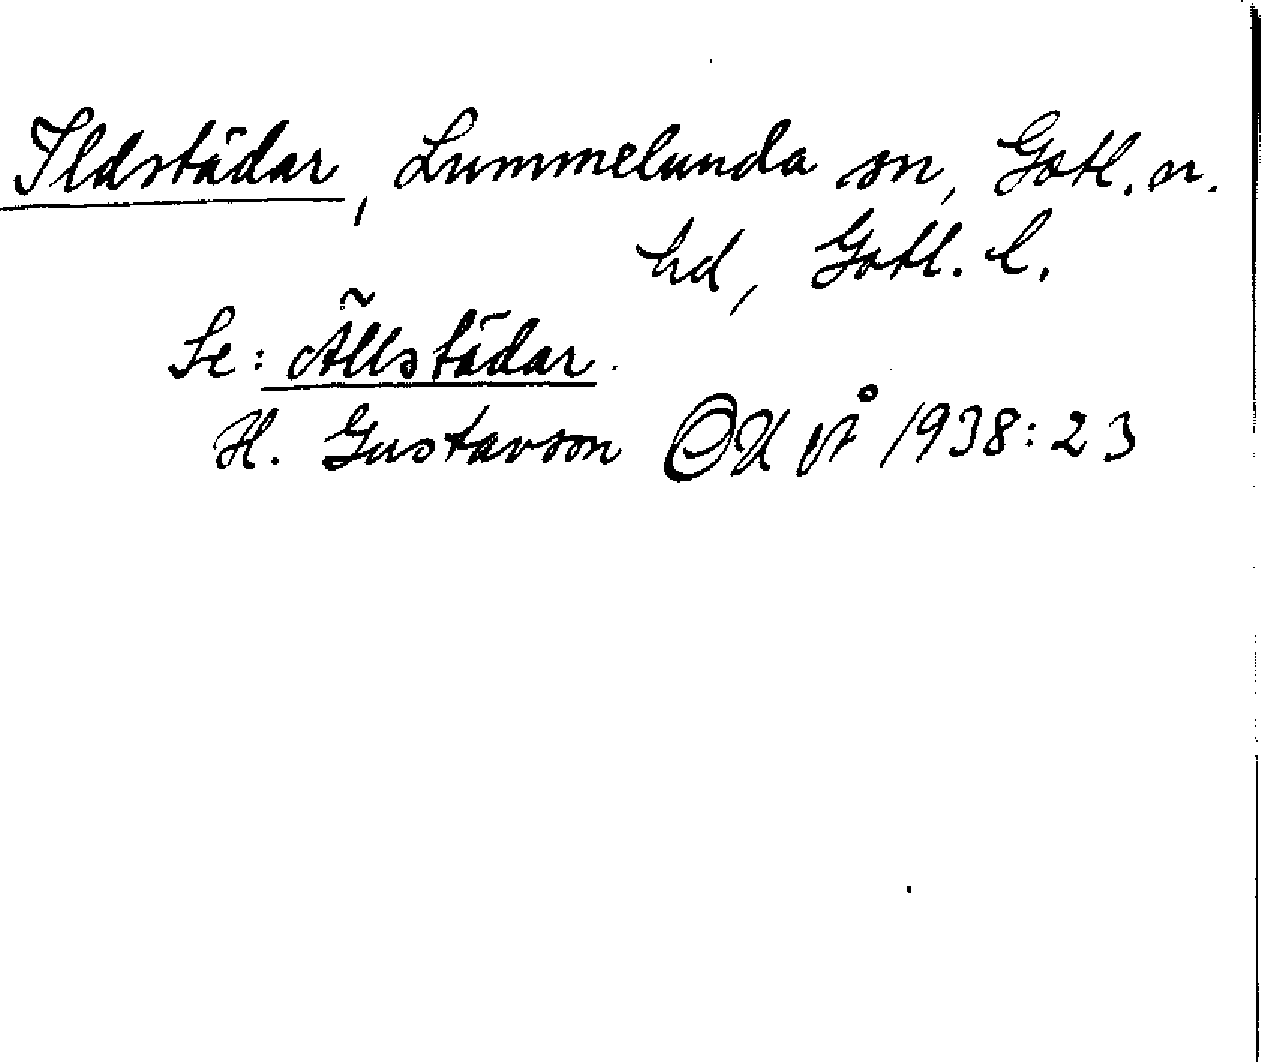 Ildstädar, Lummelunda sn, Gotl. n.
hd, Gotl. l.
Se: Ällstädar.
H. Gustavson 1938:23